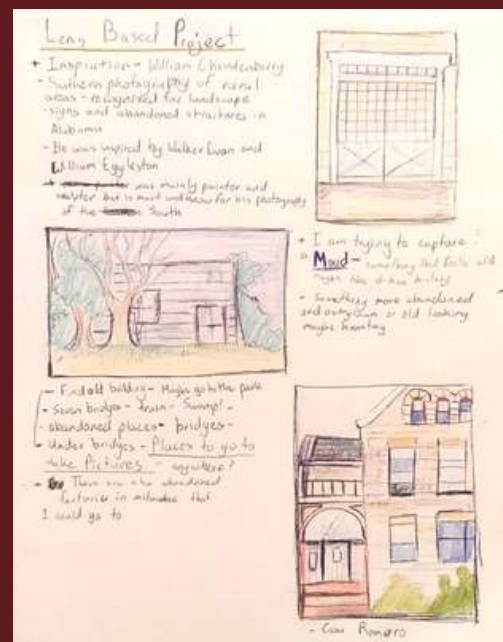 Lens Based Project
+ Inspiration - William
- Suthern photography of rural
areas - recognized for landscape
signs and abandoned structures in
Alabama
- He was inspired by Walker Evan and
William Eggleston
+ was mainly painter and
but is most well know for his photography
of the South
+ I am trying to capture:
Mood - something that feels old
- Something more abandoned
and overgrown or old looking
maybe haunting
- Find old building - Maybe go to the park
- Seven bridges - train -
- abandoned places - bridges -
- Under bridges - Places to go to
take Pictures - anywhere?
- There are abandoned
factories in milwaukee that
I could go to
- Romero